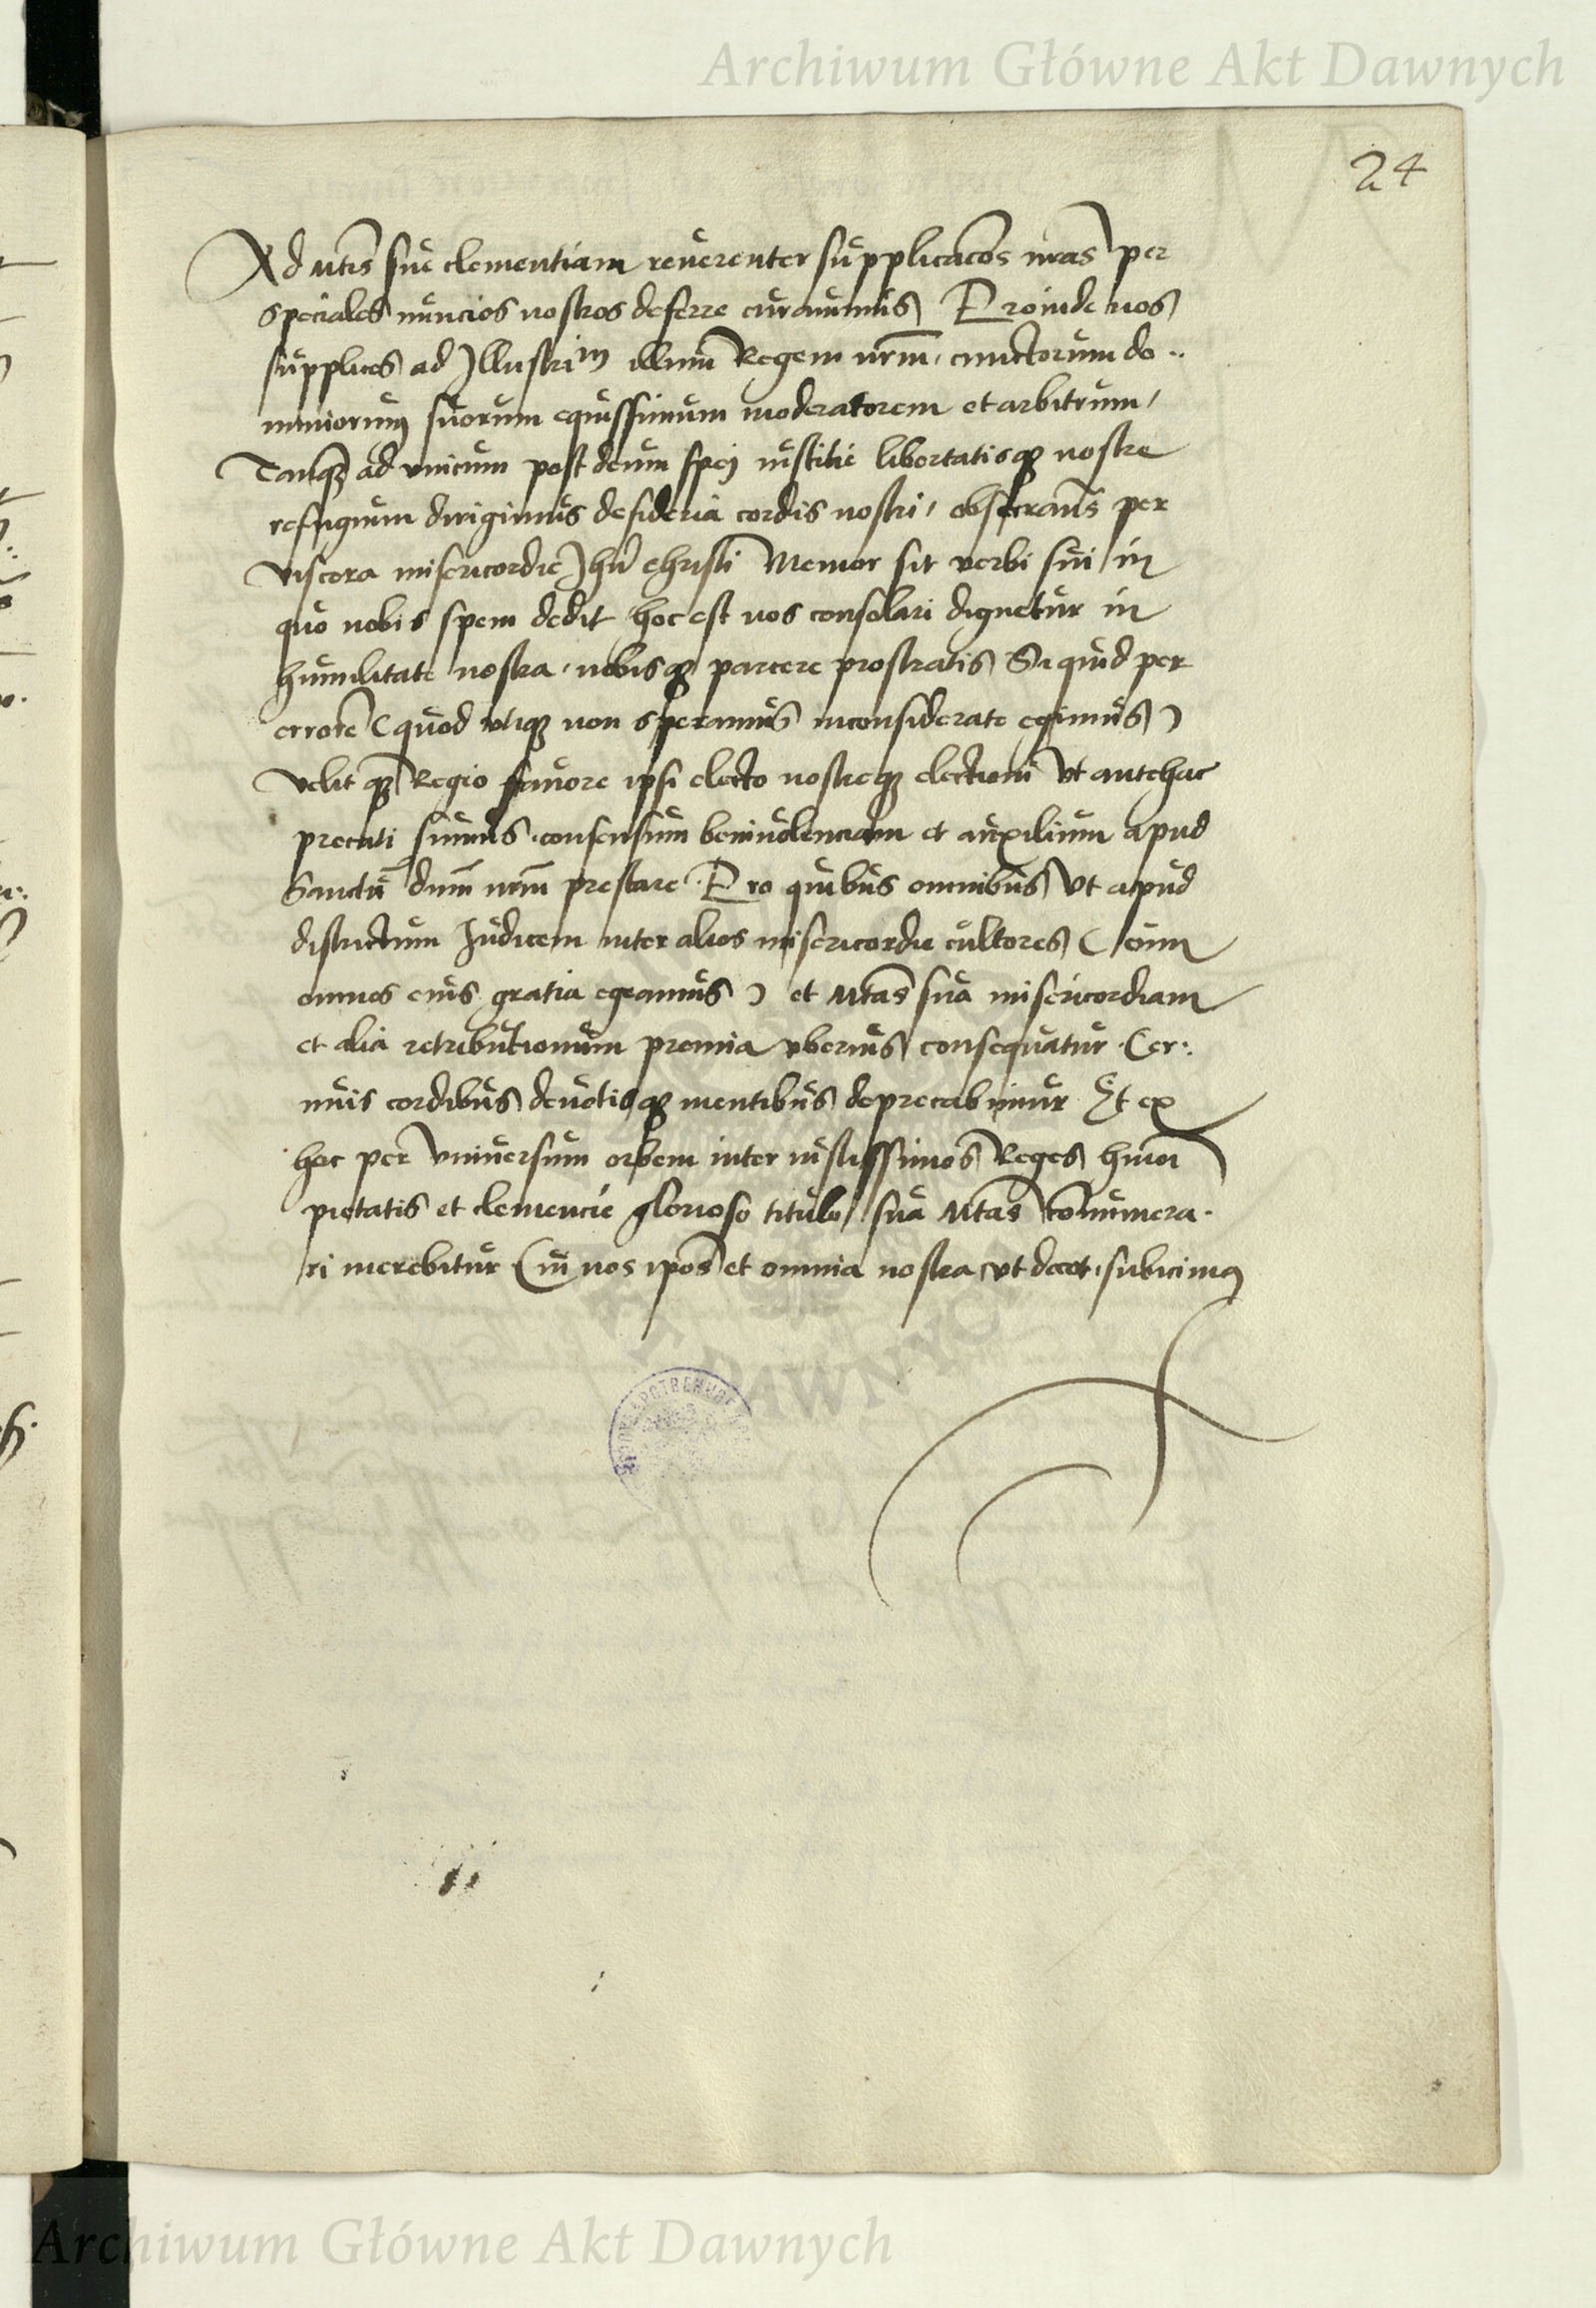 Archiwum Główne Akt Dawnych
24
Ad mtis sue clementiam reuerenter supplicacões nras per
speciales nuncios nostros deferre curauimus Proinde nos
supplices ad Illustrim illum Regem nrm, cunctorum do..
miniorum suorum equissimum moderatorem et arbitrum,
Tanq̃ ad vnicum post deum spei iusticie libertatisq3 nostre
refugium dirigimus desideria cordis nostri, obsecrans per
viscera misericordie Jhu christi Memor sit verbi sui in
quo nobis spem dedit hoc est nos consolari dignetur in
humilitate nostra, nobisq3 parcere prostratis Si quid per
errorẽ (quod vtiq3 non speramus inconsiderate egimus)
velit q3 Regio fauore ipsi electo nostreq3 electioni vt antehac
precati sumus. consensum beniuolenciam et auxilium apud
Sanctũ dnm nrm prestare. Pro quibus omnibus vt apud
districtum Judicem inter alios misericordie cultores (Cum
omnes eius gratia egeamus) et Mtas sua misericordiam
et alia retributionum premia vberius consequatur. Cer:.
nuis cordibus deuotisq3 mentibus deprecabimur Et ex
hoc per vniuersum orbem inter iustissimos Reges hmõi
pietatis et clemencie glorioso titulo sua Mtas cõnumera.
ri merebitur Cui nos ipos et omnia nostra vt decet, subicimus
DAWNYCH
Archiwum Główne Akt Dawnych